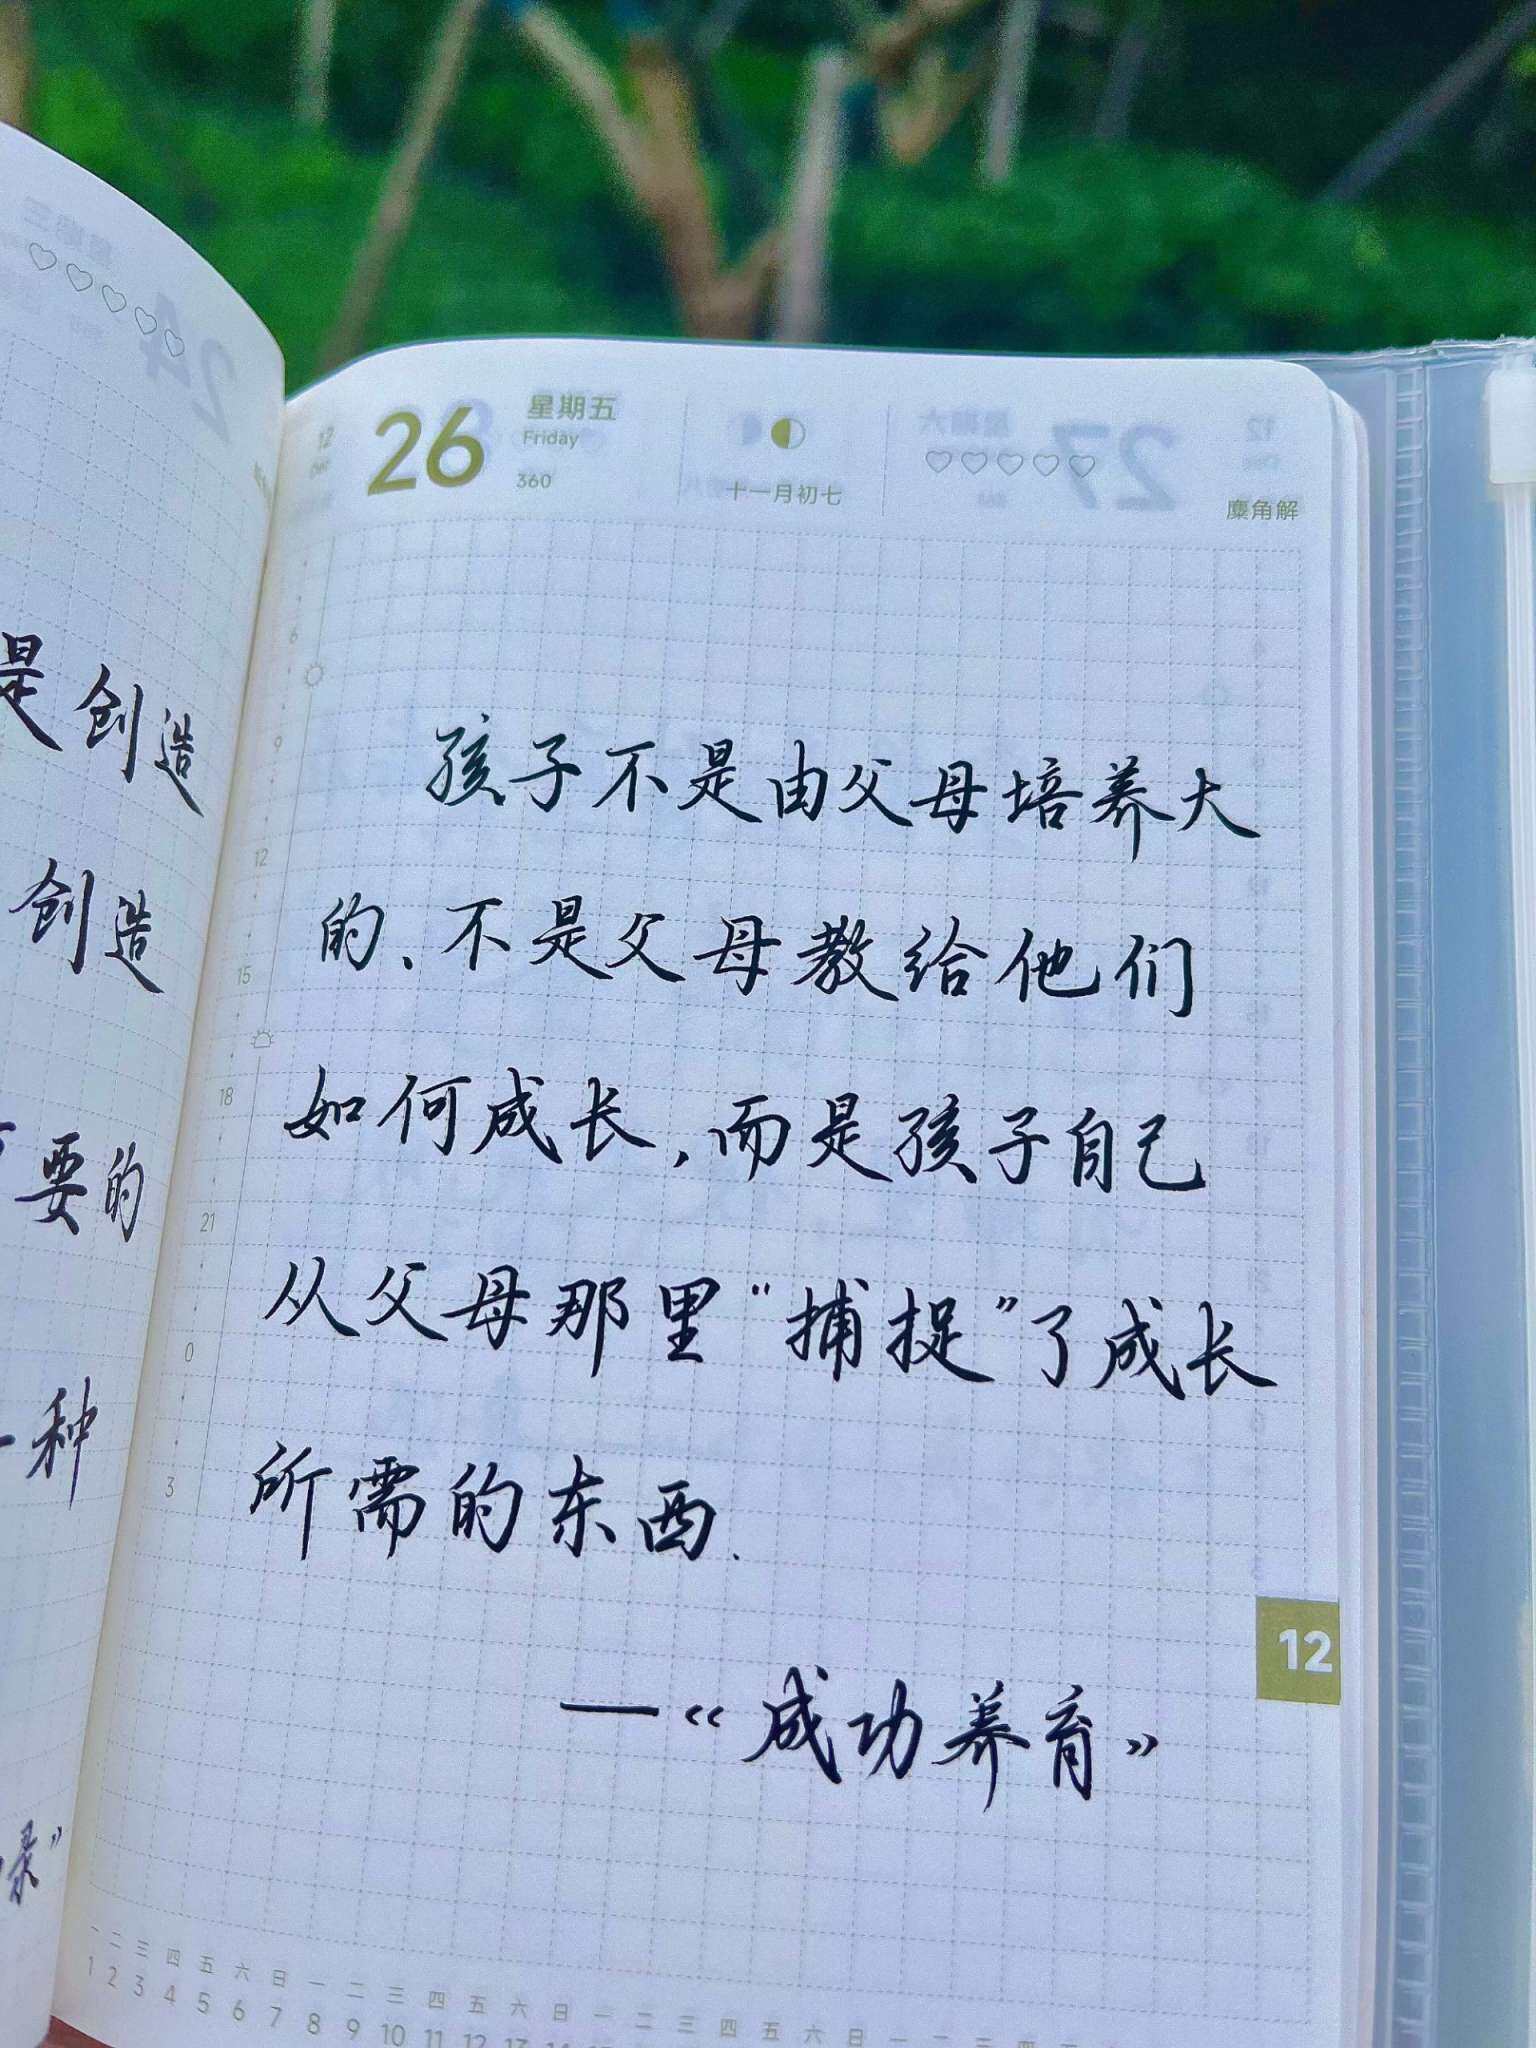 是创造
创造
要的
一种
录”
26
星期五
Friday
360
十一月初七
麋角解
6
9
12
15
18
21
0
3
孩子不是由父母培养大
的、不是父母教给他们
如何成长,而是孩子自己
从父母那里“捕捉”了成长
所需的东西.
—《成功养育》
12
一 二 三 四 五 六 日 一 二 三 四 五 六 日 一 二 三 四 五 六 日 一 二 三 四
1 2 3 4 5 6 7 8 9 10 11 12 13